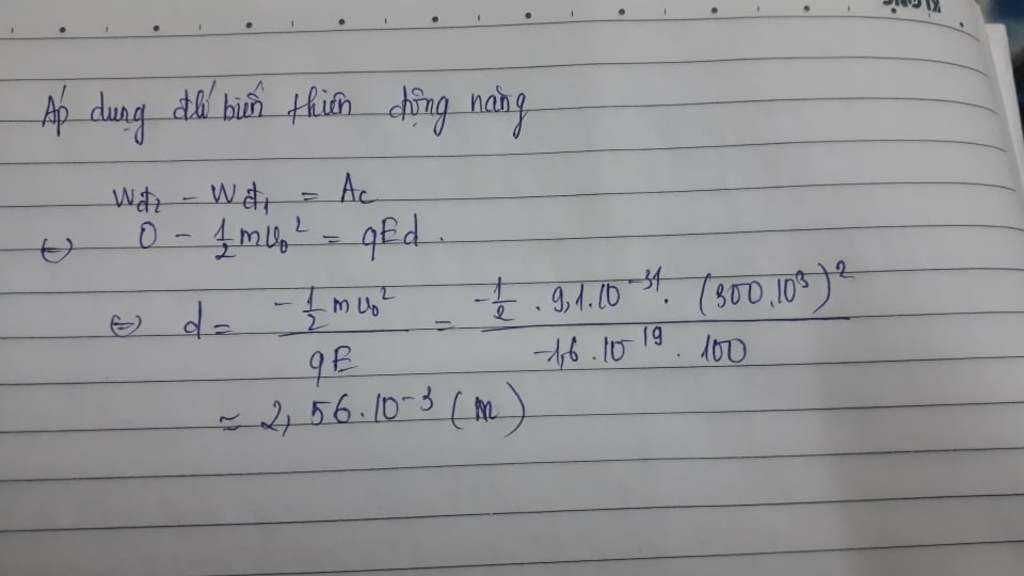 Áp dụng đlí biến thiên động năng
Wđ₂ - Wđ₁ = Ac
⇔ 0 - 1/2 mv₀² = qEd.
⇔ d = (-1/2 mv₀²)/(qE) = (-1/2 . 9,1.10⁻³¹. (300.10³)²)/(-1,6.10⁻¹⁹. 100)
≈ 2,56.10⁻³ (m)